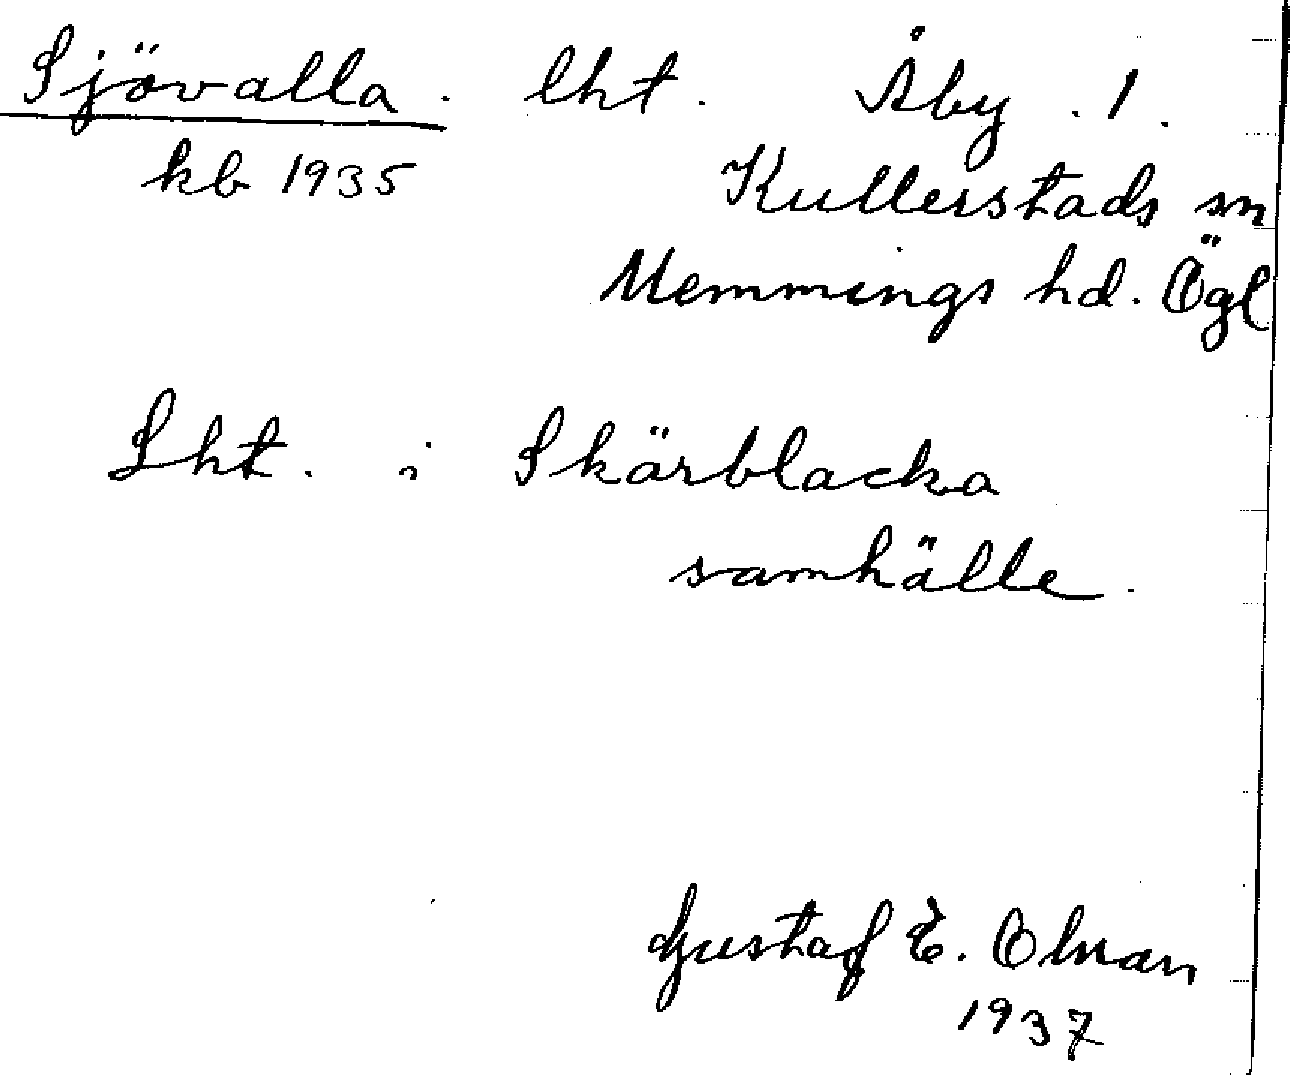 Sjövalla. lht. Åby. 1.
kb 1935
Kullerstads sn
Memmings hd. Ögl
Lht. i Skärblacka
samhälle.
Gustaf E.
1937